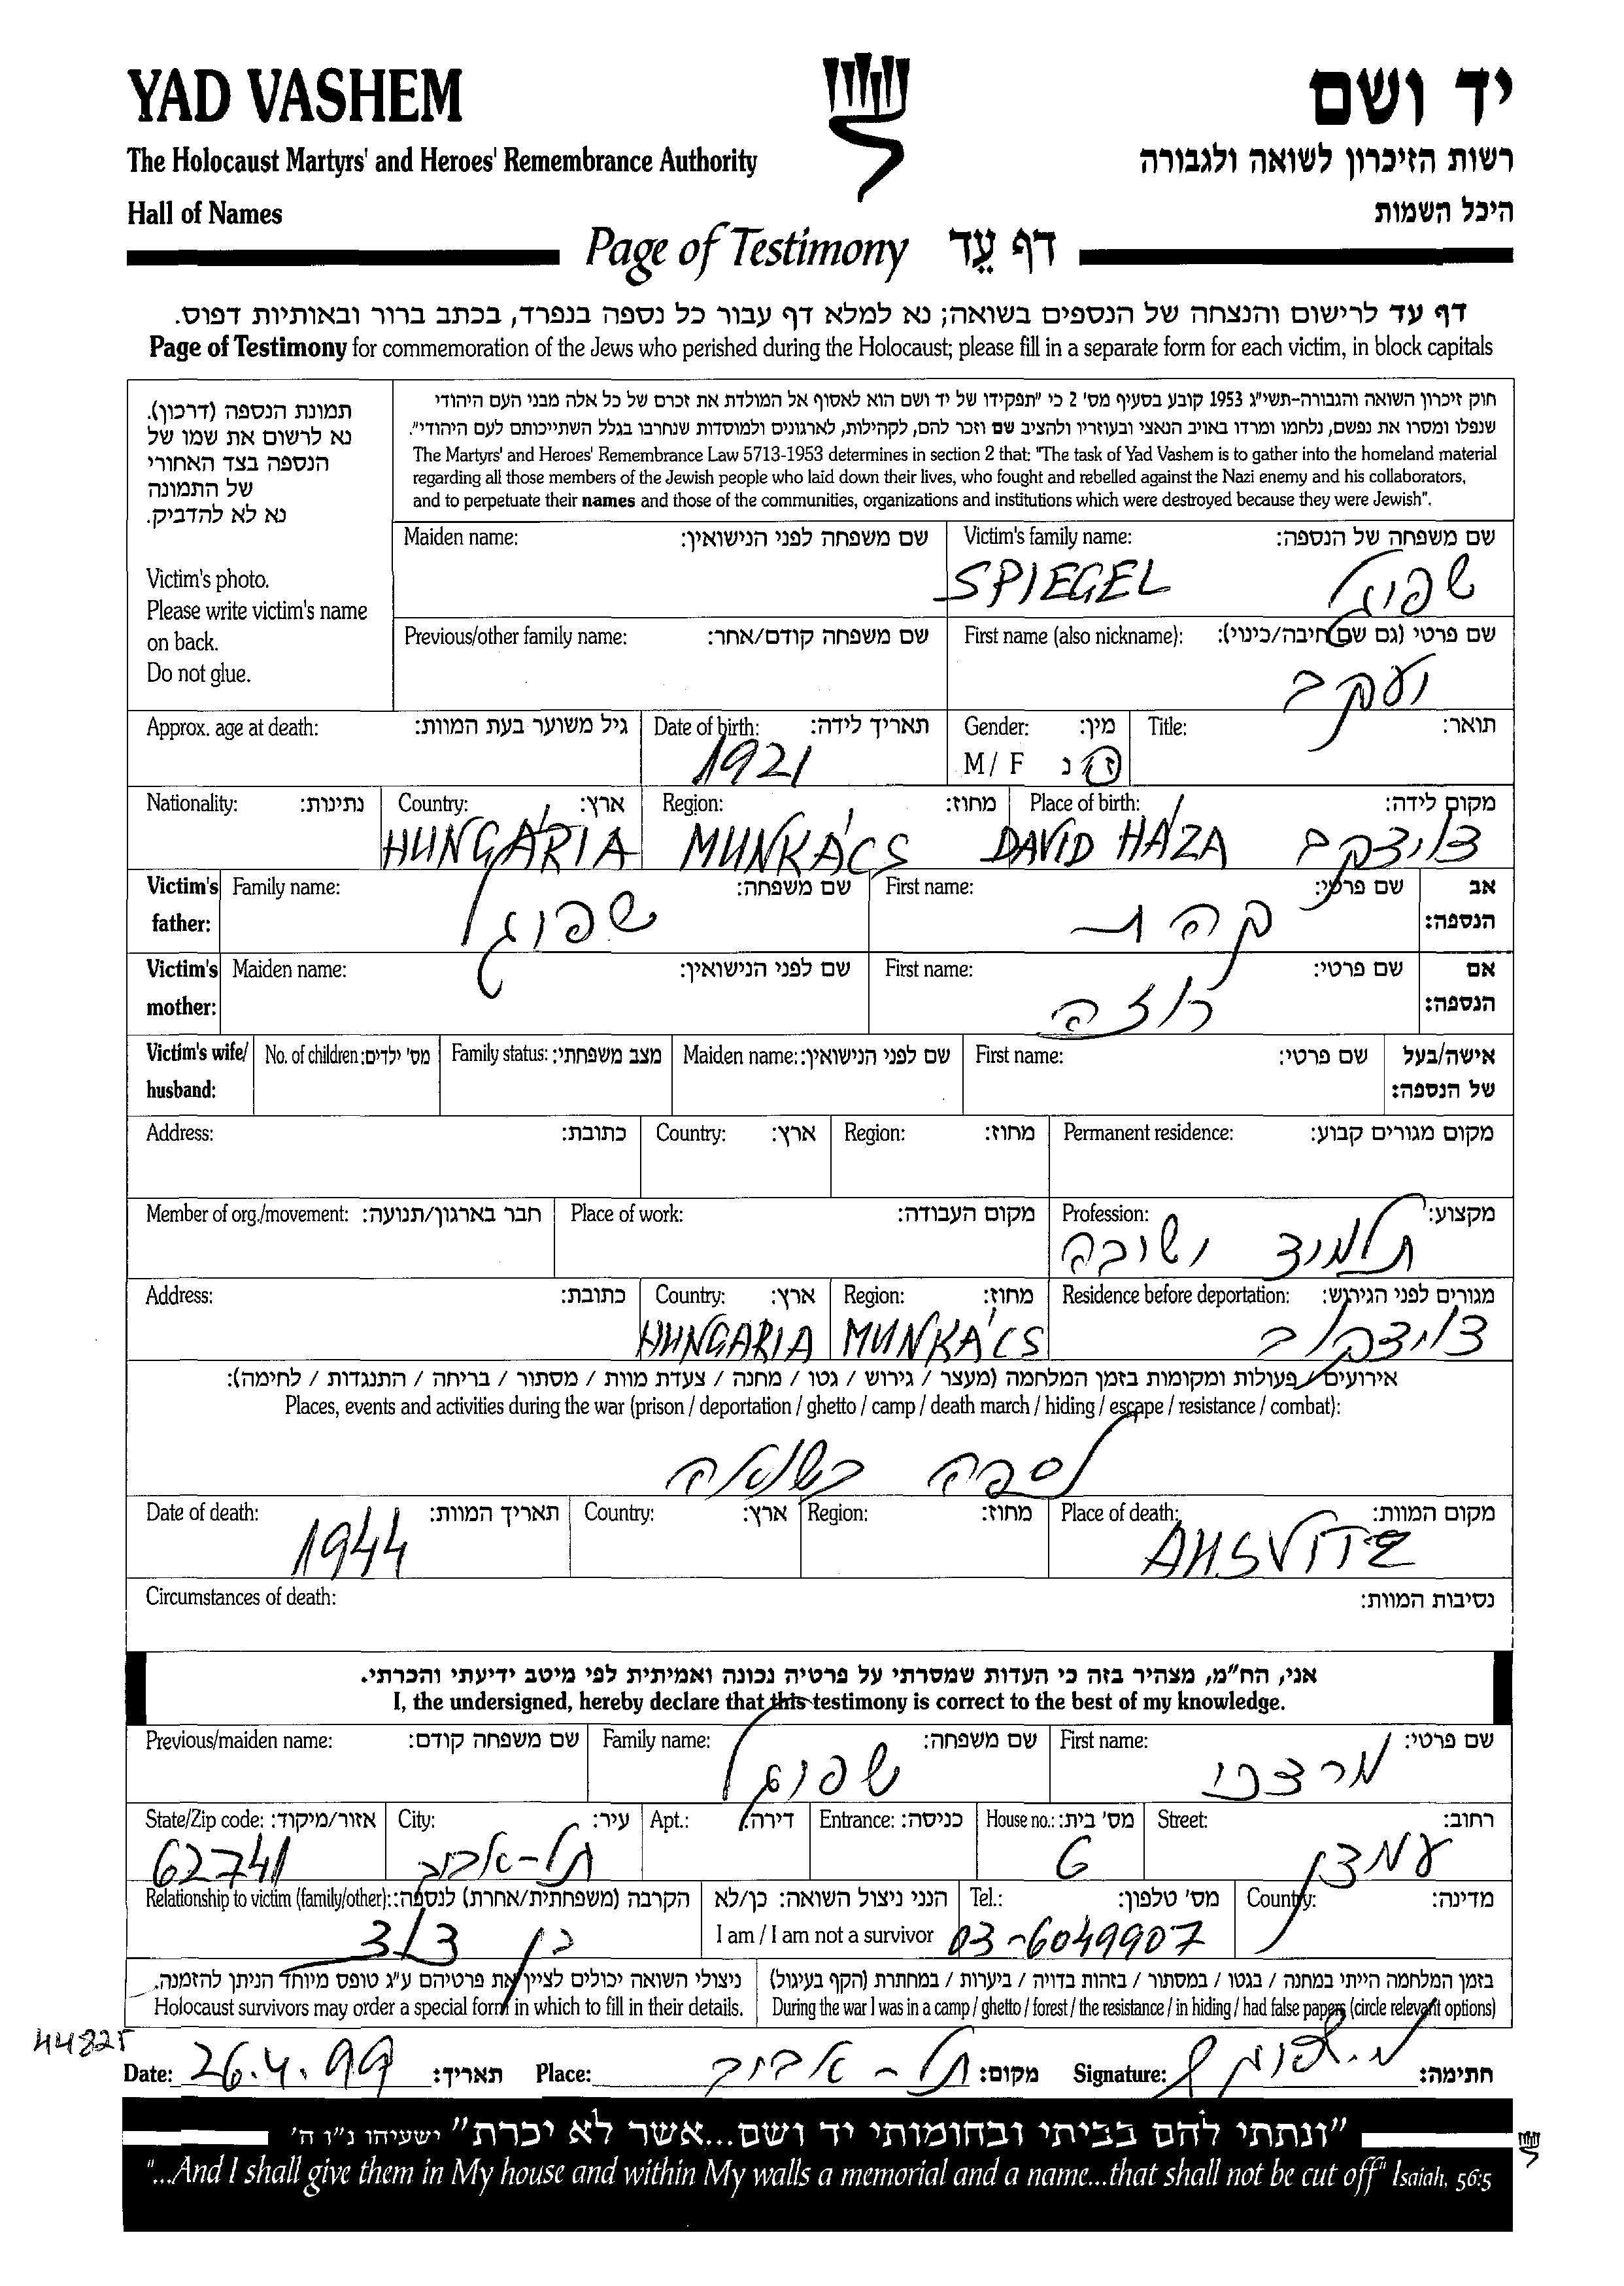 YAD VASHEM
יד ושם
The Holocaust Martyrs' and Heroes' Remembrance Authority
רשות הזיכרון לשואה ולגבורה
Hall of Names
היכל השמות
Page of Testimony דף עֵד
דף עד לרישום והנצחה של הנספים בשואה; נא למלא דף עבור כל נספה בנפרד, בכתב ברור ובאותיות דפוס.
Page of Testimony for commemoration of the Jews who perished during the Holocaust; please fill in a separate form for each victim, in block capitals
תמונת הנספה (דרכון).
נא לרשום את שמו של
הנספה בצד האחורי
של התמונה
נא לא להדביק.
Victim's photo.
Please write victim's name
on back.
Do not glue.
חוק זיכרון השואה והגבורה-תשי"ג 1953 קובע בסעיף מס' 2 כי "תפקידו של יד ושם הוא לאסוף אל המולדת את זכרם של כל אלה מבני העם היהודי
שנפלו ומסרו את נפשם, נלחמו ומרדו באויב הנאצי ובעוזריו ולהציב שם וזכר להם, לקהילות, לארגונים ולמוסדות שנחרבו בגלל השתייכותם לעם היהודי".
The Martyrs' and Heroes' Remembrance Law 5713-1953 determines in section 2 that: "The task of Yad Vashem is to gather into the homeland material
regarding all those members of the Jewish people who laid down their lives, who fought and rebelled against the Nazi enemy and his collaborators,
and to perpetuate their names and those of the communities, organizations and institutions which were destroyed because they were Jewish".
Maiden name: שם משפחה לפני הנישואין: Victim's family name: שם משפחה של הנספה:
SPIEGEL שפיגל
Previous/other family name: שם משפחה קודם/אחר: First name (also nickname): שם פרטי (גם שם חיבה/כינוי):
יעקב
Approx. age at death: גיל משוער בעת המוות: Date of birth: תאריך לידה: Gender: מין: Title: תואר:
1921 M / F ז / נ
Nationality: נתינות: Country: ארץ: Region: מחוז: Place of birth: מקום לידה:
HUNGÁRIA MUNKÁCS DAVID HÁZA
Victim's father: Family name: שם משפחה: First name: שם פרטי: אב הנספה:
שפיגל קהת
Victim's mother: Maiden name: שם לפני הנישואין: First name: שם פרטי: אם הנספה:
רוזה
Victim's wife/ husband: No. of children: מס' ילדים: Family status: מצב משפחתי: Maiden name: שם לפני הנישואין: First name: שם פרטי: אישה/בעל של הנספה:
Address: כתובת: Country: ארץ: Region: מחוז: Permanent residence: מקום מגורים קבוע:
Member of org./movement: חבר בארגון/תנועה: Place of work: מקום העבודה: Profession: מקצוע:
תלמיד ישיבה
Address: כתובת: Country: ארץ: Region: מחוז: Residence before deportation: מגורים לפני הגירוש:
HUNGARIA MUNKÁCS
אירועים / פעולות ומקומות בזמן המלחמה (מעצר / גירוש / גטו / מחנה / צעדת מוות / מסתור / בריחה / התנגדות / לחימה):
Places, events and activities during the war (prison / deportation / ghetto / camp / death march / hiding / escape / resistance / combat):
נספה בשואה
Date of death: תאריך המוות: Country: ארץ: Region: מחוז: Place of death: מקום המוות:
1944 AHSVITZ
Circumstances of death: נסיבות המוות:
אני, הח"מ, מצהיר בזה כי העדות שמסרתי על פרטיה נכונה ואמיתית לפי מיטב ידיעתי והכרתי.
I, the undersigned, hereby declare that this testimony is correct to the best of my knowledge.
Previous/maiden name: שם משפחה קודם: Family name: שם משפחה: First name: שם פרטי:
שפיגל מרדכי
State/Zip code: אזור/מיקוד: City: עיר: Apt.: דירה: Entrance: כניסה: House no.: מס' בית: Street: רחוב:
62741 תל-אביב 6
Relationship to victim (family/other): הקרבה (משפחתית/אחרת) לנספה: הנני ניצול השואה: כן/לא Tel.: מס' טלפון: Country: מדינה:
בן דוד I am / I am not a survivor 03-6049907
ניצולי השואה יכולים לציין את פרטיהם ע"ג טופס מיוחד הניתן להזמנה. בזמן המלחמה הייתי במחנה / בגטו / במסתור / בזהות בדויה / ביערות / במחתרת (הקף בעיגול)
Holocaust survivors may order a special form in which to fill in their details. During the war I was in a camp / ghetto / forest / the resistance / in hiding / had false papers (circle relevant options)
44825
Date: 26.4.99 תאריך: Place: תל-אביב מקום: Signature: חתימה:
"ונתתי להם בביתי ובחומותי יד ושם...אשר לא יכרת" ישעיהו נ"ו ה'
"...And I shall give them in My house and within My walls a memorial and a name...that shall not be cut off" Isaiah, 56:5